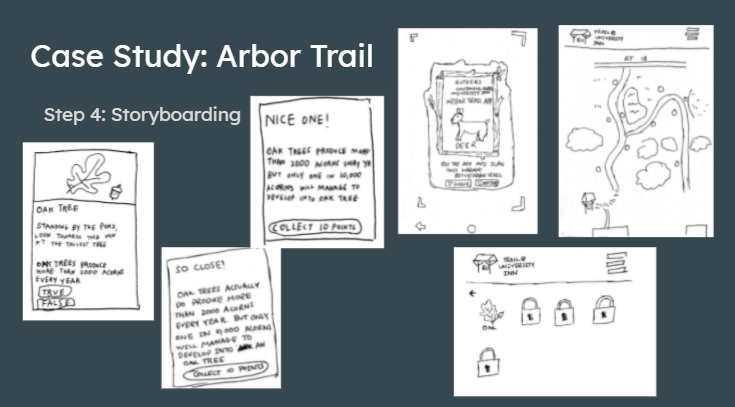 Case Study: Arbor Trail
Step 4: Storyboarding
OAK TREE
STANDING BY THE POND,
LOOK TOWARDS THE INN
AT THE TALLEST TREE
OAK TREES PRODUCE
MORE THAN 2000 ACORNS
EVERY YEAR
TRUE
FALSE
NICE ONE!
OAK TREES PRODUCE MORE
THAN 2000 ACORNS EVERY YR
BUT ONLY ONE IN 10,000
ACORNS WILL MANAGE TO
DEVELOP INTO OAK TREE
COLLECT 10 POINTS
SO CLOSE!
OAK TREES ACTUALLY
DO PRODUCE MORE
THAN 2000 ACORNS
EVERY YEAR. BUT ONLY
ONE IN ACORNS
WILL MANAGE TO
DEVELOP INTO AN
OAK TREE
COLLECT 10 POINTS
RUTGERS
UNIVERSITY INN
ARBOR TRAIL APP
DEER
THE APP AND SCAN
THIS MARKER
TRAIL @
UNIVERSITY
INN
RT 1A
TRAIL @
UNIVERSITY
INN
OAK